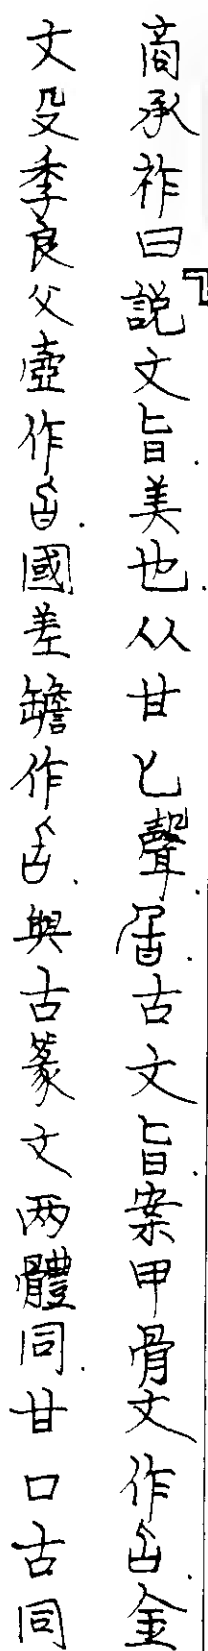 商承祚曰﹁說文旨美也从甘匕聲𣅌古文旨案甲骨文作金
文殳季良父壺作國差𦉜作與古篆文两體同甘口古同